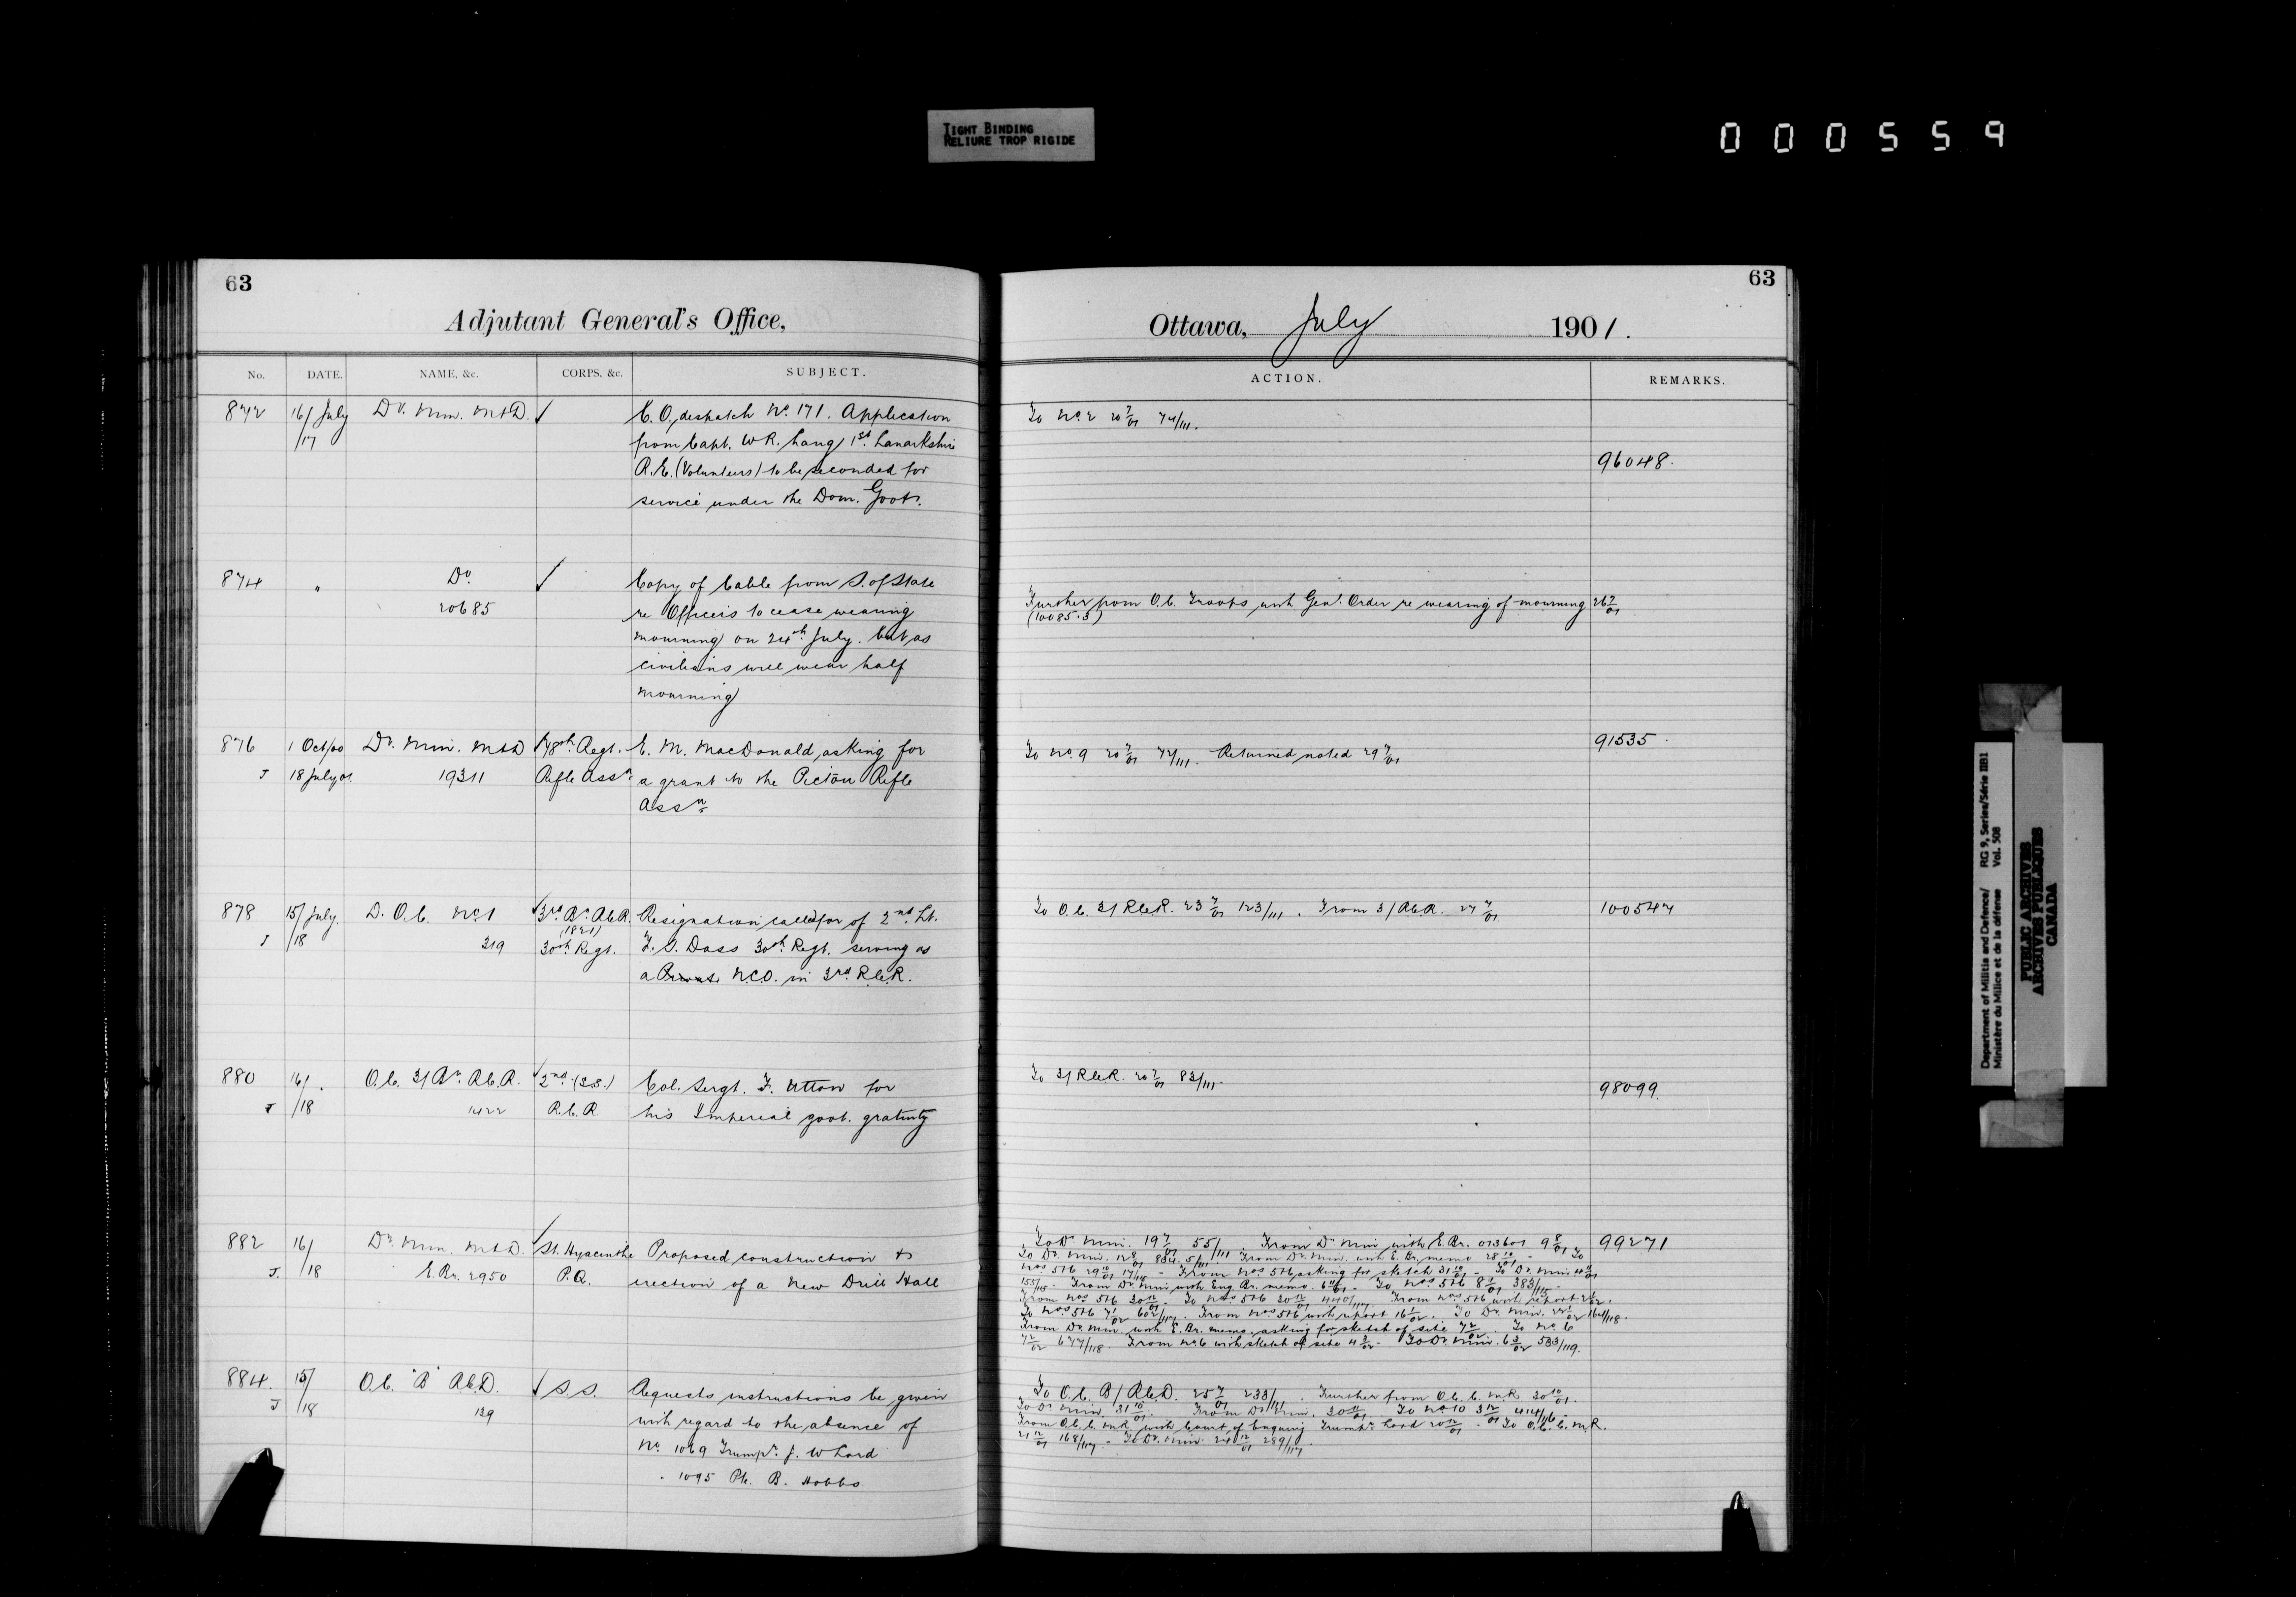 TIGHT BINDING
RELIURE TROP RIGIDE
000559
63
Adjutant General's Office,
No. DATE. NAME, &c. CORPS, &c. SUBJECT.
872 16/July Dy. Min. M&D. ✓ C.O. despatch No. 171. Application
/17 from Capt. W.R. Lang 1st Lanarkshire
R.E. (Volunteers) to be seconded for
service under the Dom. Govt.
874 " Do. ✓ Copy of Cable from S. of State
20685 re Officers to cease wearing
mourning on 24th July. but as
civilians will wear half
mourning
876 1 Oct/00 Dy. Min. M&D ✓78th Regt. E. M. MacDonald, asking for
J 18 July 01 19311 Rifle Assn. a grant to the Pictou Rifle
Assn
878 15/July D.O.C. No. 1 ✓3rd Bn. R.C.R. Resignation called for of 2nd Lt.
(1821)
J /18 319 30th Regt. F. S. Dass 30th Regt. serving as
a Private N.C.O. in 3rd R.C.R.
880 16/ O.C. 3/Bn. R.C.R. ✓2nd (S.S.) Col. Sergt. F. Utton for
J /18 1422 R.C.R. his Imperial govt. gratuity
882 16/ Dy. Min. M&D. ✓St. Hyacinthe Proposed construction &
J. /18 E.Br. 2950 P.Q. erection of a new Drill Hall
884. 15/ O.C. "B" R.C.D. ✓ S.S. Requests instructions be given
J /18 139 with regard to the absence of
No. 1069 Trumpr. J. W Lord
" 1095 Pte. B. Hobbs
63
Ottawa, July 1901.
ACTION. REMARKS.
To No. 2 20 7/01 74/111.
96048.
Further from O.C. Troops with Genl. Order re wearing of mourning 26 7/01
(10085.3)
91535
To No. 9 20 7/01 72/111. Returned noted 29 7/01
To O.C. 3/R.C.R. 23 7/01 123/111. From 3/R.C.R. 27 7/01 100547
To 3/R.C.R. 20 7/01 83/111. 98099.
To Dy. Min. 19 7/01 55/111 From Dy Min with E.Br. 013601 9 8/01 99271
To Dy. Min. 12 8/01 From Dy. Min. with E. Br. memo 28 10/01 - To
Nos 5&6 29 10/01 - From Nos 5&6 asking for sketch 31 10/01 - To Dy. Min 4 11/01
155/115 - From Dy Min with Eng. Br. memo. 6 11/01 - To Nos. 5&6 8 11/01 383/115 -
From Nos. 5&6 30 11/01 - To Nos 5&6 30 11/01 From Nos. 5&6 with report
To Nos 5&6 7 1/02 602/117. From Nos 5&6 with report 16 1/02. To Dy. Min. 22 1/02 164/118.
From Dy. Min. with E. Br. memo. asking for sketch of site 7 2/02. To No. 6
7 2/02 677/118. From No 6 with sketch of site 4 3/02 - To Dy. Min. 6 3/02 583/119.
To O.C. B/R.C.D. 25 7/01 233/111. Further from O.C. C.M.R. 30 10/01.
To Dy Min. 31 10/01. From Dy Min. 30 11/01 To No 10 3 12/01 414/116 -
From O.C. C.M.R. with Court of Enquiry Trumpr Lord 20 12/01 - To O.C. C.M.R.
21 12/01 168/117 - To Dy. Min 24 12/01 289/117
Department of Militia and Defence/ RG 9, Series/Série IIB1
Ministère du Milice et de la défense Vol. 508
PUBLIC ARCHIVES
ARCHIVES PUBLIQUES
CANADA